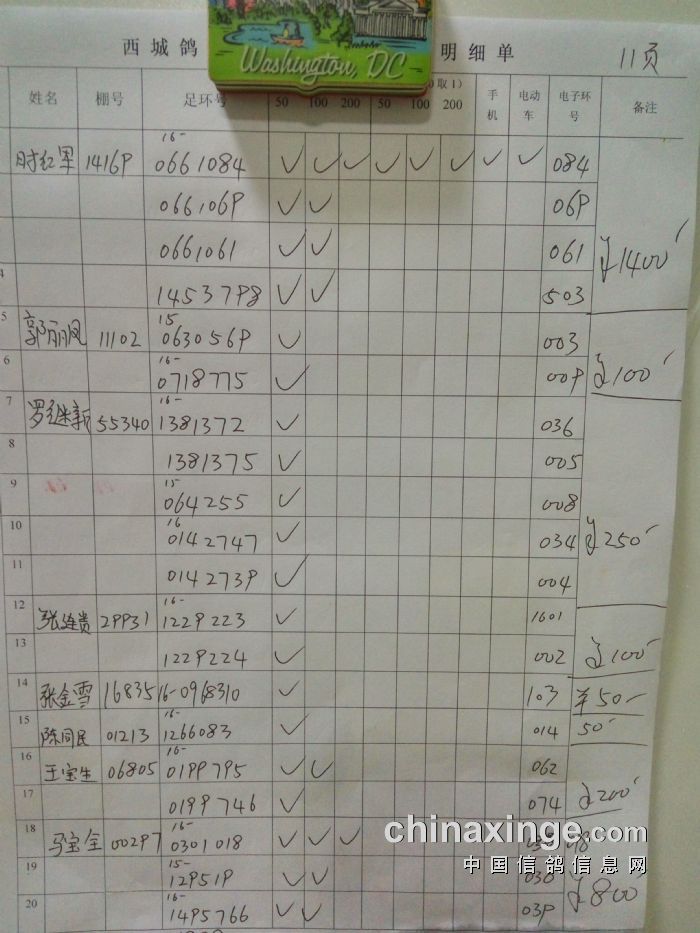 西城鸽 明细单 11页
Washington, DC
姓名 棚号 足环号 50 100 200 50 100 200 手机 电动车 电子环号 备注
取1）
16-
时红军 14169 0661084 ✓ ✓ ✓ ✓ ✓ ✓ ✓ ✓ 084
0661069 ✓ ✓ 069
0661061 ✓ ✓ 061 ¥1400
4 1453798 ✓ ✓ 503
5 15
郭丽凤 11102 0630569 ✓ 003
6 16-
0718775 ✓ 009 ¥100
7 16-
罗继新 55340 1381372 ✓ 036
8 1381375 ✓ 005
9 15
064255 ✓ 008
10 16
0142747 ✓ 034 ¥250
11 0142739 ✓ 004
12 16-
张连贵 29931 1229223 ✓ 1601
13 1229224 ✓ 002 ¥100
14 张金雪 16835 16-0968310 ✓ 103 ¥50-
15 16-
陈同民 01213 1266083 ✓ 014 50
16 16-
王宝生 06805 0199795 ✓ ✓ 062
17 0199746 ✓ 074 ¥200
18 16-
马宝全 00297 0301018 ✓ ✓ ✓
chinaxinge.com
19 15-
129519 ✓ ✓ 038
中国信鸽信息网
20 16-
1495766 ✓ ✓ 039 ¥800